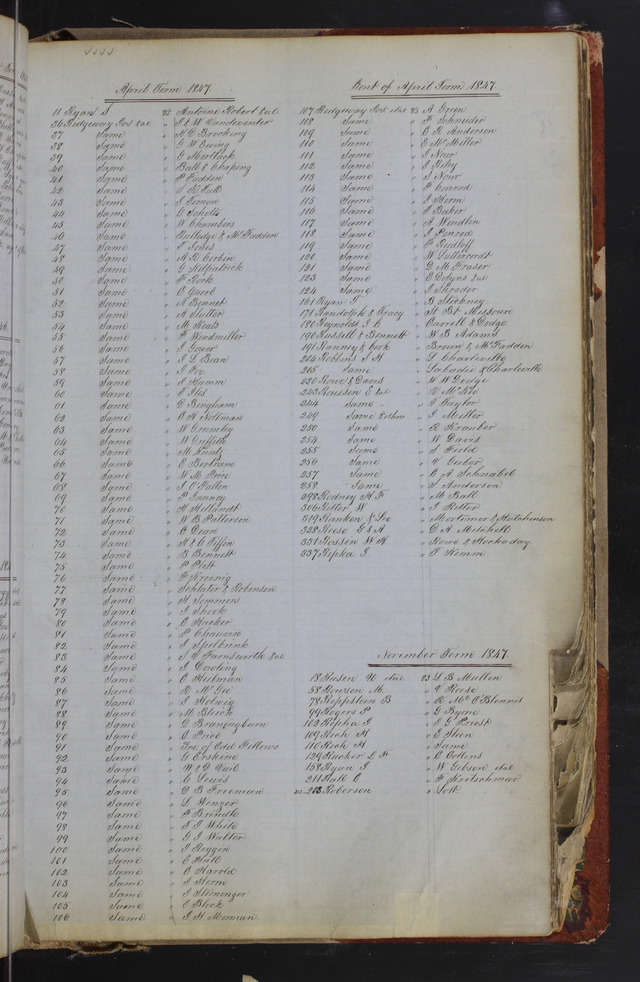 April Term 1847.
11 Ryan S vs Antoine Robert &al
36 Ridgeway Jos &al " J & W Vandeventer
37 Same " H C Brocking
38 Same " G W Ewing
39 Same " G Matlack
40 Same " Ball & Chaping
41 Same " P Fadden
42 Same " S R Hall
43 Same " J Lemon
44 Same " G Scholls
45 Same " W Chambers
46 Same " Rutledge & McFadden
47 Same " T Jones
48 Same " A R Corbin
49 Same " G Kilpatrick
50 Same " F Hock
51 Same " C Guerl
52 Same " A Bennet
53 Same " A Sutter
54 Same " M Keats
55 Same " F Windmiller
56 Same " J Gover
57 Same " J L Bean
58 Same " J Fox
59 Same " J Hamm
60 Same " F Iles
61 Same " C Bingham
62 Same " C H Noltman
63 Same " W Grumley
64 Same " W Griffith
65 Same " M Kuntz
66 Same " E Bertram
67 Same " W M Price
68 Same " J C Pallen
69 Same " P Finney
70 Same " H Hollandt
71 Same " W B Patterson
72 Same " C Degro
73 Same " A & C Tiffin
74 Same " B Bennett
75 Same " P Plitt
76 Same " F Kroenig
77 Same " Schlater & Robinson
78 Same " H Sommers
79 Same " J Shook
80 Same " C Hacker
81 Same " P Chauvin
82 Same " J Spelbrink
83 Same " S V Farnsworth &al
84 Same " J Dowling
85 Same " C Heitman
86 Same " R McGee
87 Same " J Helwig
88 Same " M Steitz
89 Same " C Braningburn
90 Same " A Price
91 Same " Trs of Odd Fellows
92 Same " G Erskine
93 Same " W & G Ford
94 Same " C Lewis
95 Same " C B Freeman
96 Same " L Wenzer
97 Same " F Brindle
98 Same " T J White
99 Same " G J Walter
100 Same " J Reggin
101 Same " E Hall
102 Same " C Harold
103 Same " J Storm
104 Same " J Steinenger
105 Same " C Block
106 Same " J H Merman
Cont of April Term 1847
107 Ridgeway Jos &al vs A Green
108 Same " P Schneider
109 Same " C R Anderson
110 Same " E McMiller
111 Same " J Nour
112 Same " J Riley
113 Same " S Nour
114 Same " F Conrad
115 Same " J Horn
116 Same " F Baker
117 Same " A Wendlin
118 Same " J Penrod
119 Same " F Rudloff
120 Same " W Latterendt
121 Same " G M Fraser
123 Same " C Dodgns &al
124 Same " J Shrader
161 Ryan T " B Stickney
171 Randolph & Tracy " St Bt Missouri
180 Reynolds J C " Carroll & Dodge
190 Russell & Bennett " W B Adams
191 Ranney & Cook " Brown & McFadden
204 Robbins S H " L Charleville
205 Same " Labadie & Charleville
220 Rowe & Davis " W W Dodge
243 Roussin E &al " R McKee
244 Same " J Taylor
249 Same &others " J Miller
250 Same " R Krauber
254 Same " W Davis
255 Same " S Field
256 Same " V Guber
257 Same " C A Schnabel
258 Same " S Anderson
298 Rodney H F " M Ball
306 Riller W " J Ritter
319 Ranken & Lee " Mortimer & Hutchinson
328 Reese G & A " D A Mitchell
331 Rossin W H " Rowe & Hockaday
337 Repka J " T Kimm
November Term 1847.
18 Reisen U &al vs L B Mullen
58 Renson M " V Reese
78 Reppstein B " R McO'Blennis
99 Rogers P " G Byrne
102 Repka J " J G Priest
109 Rech H " C Stein
110 Rich H " Same
129 Rucker L H " C Collins
158 Ryan J " W Gibson &al
211 Rall C " F Kretschmar
213 Roberson " Lott